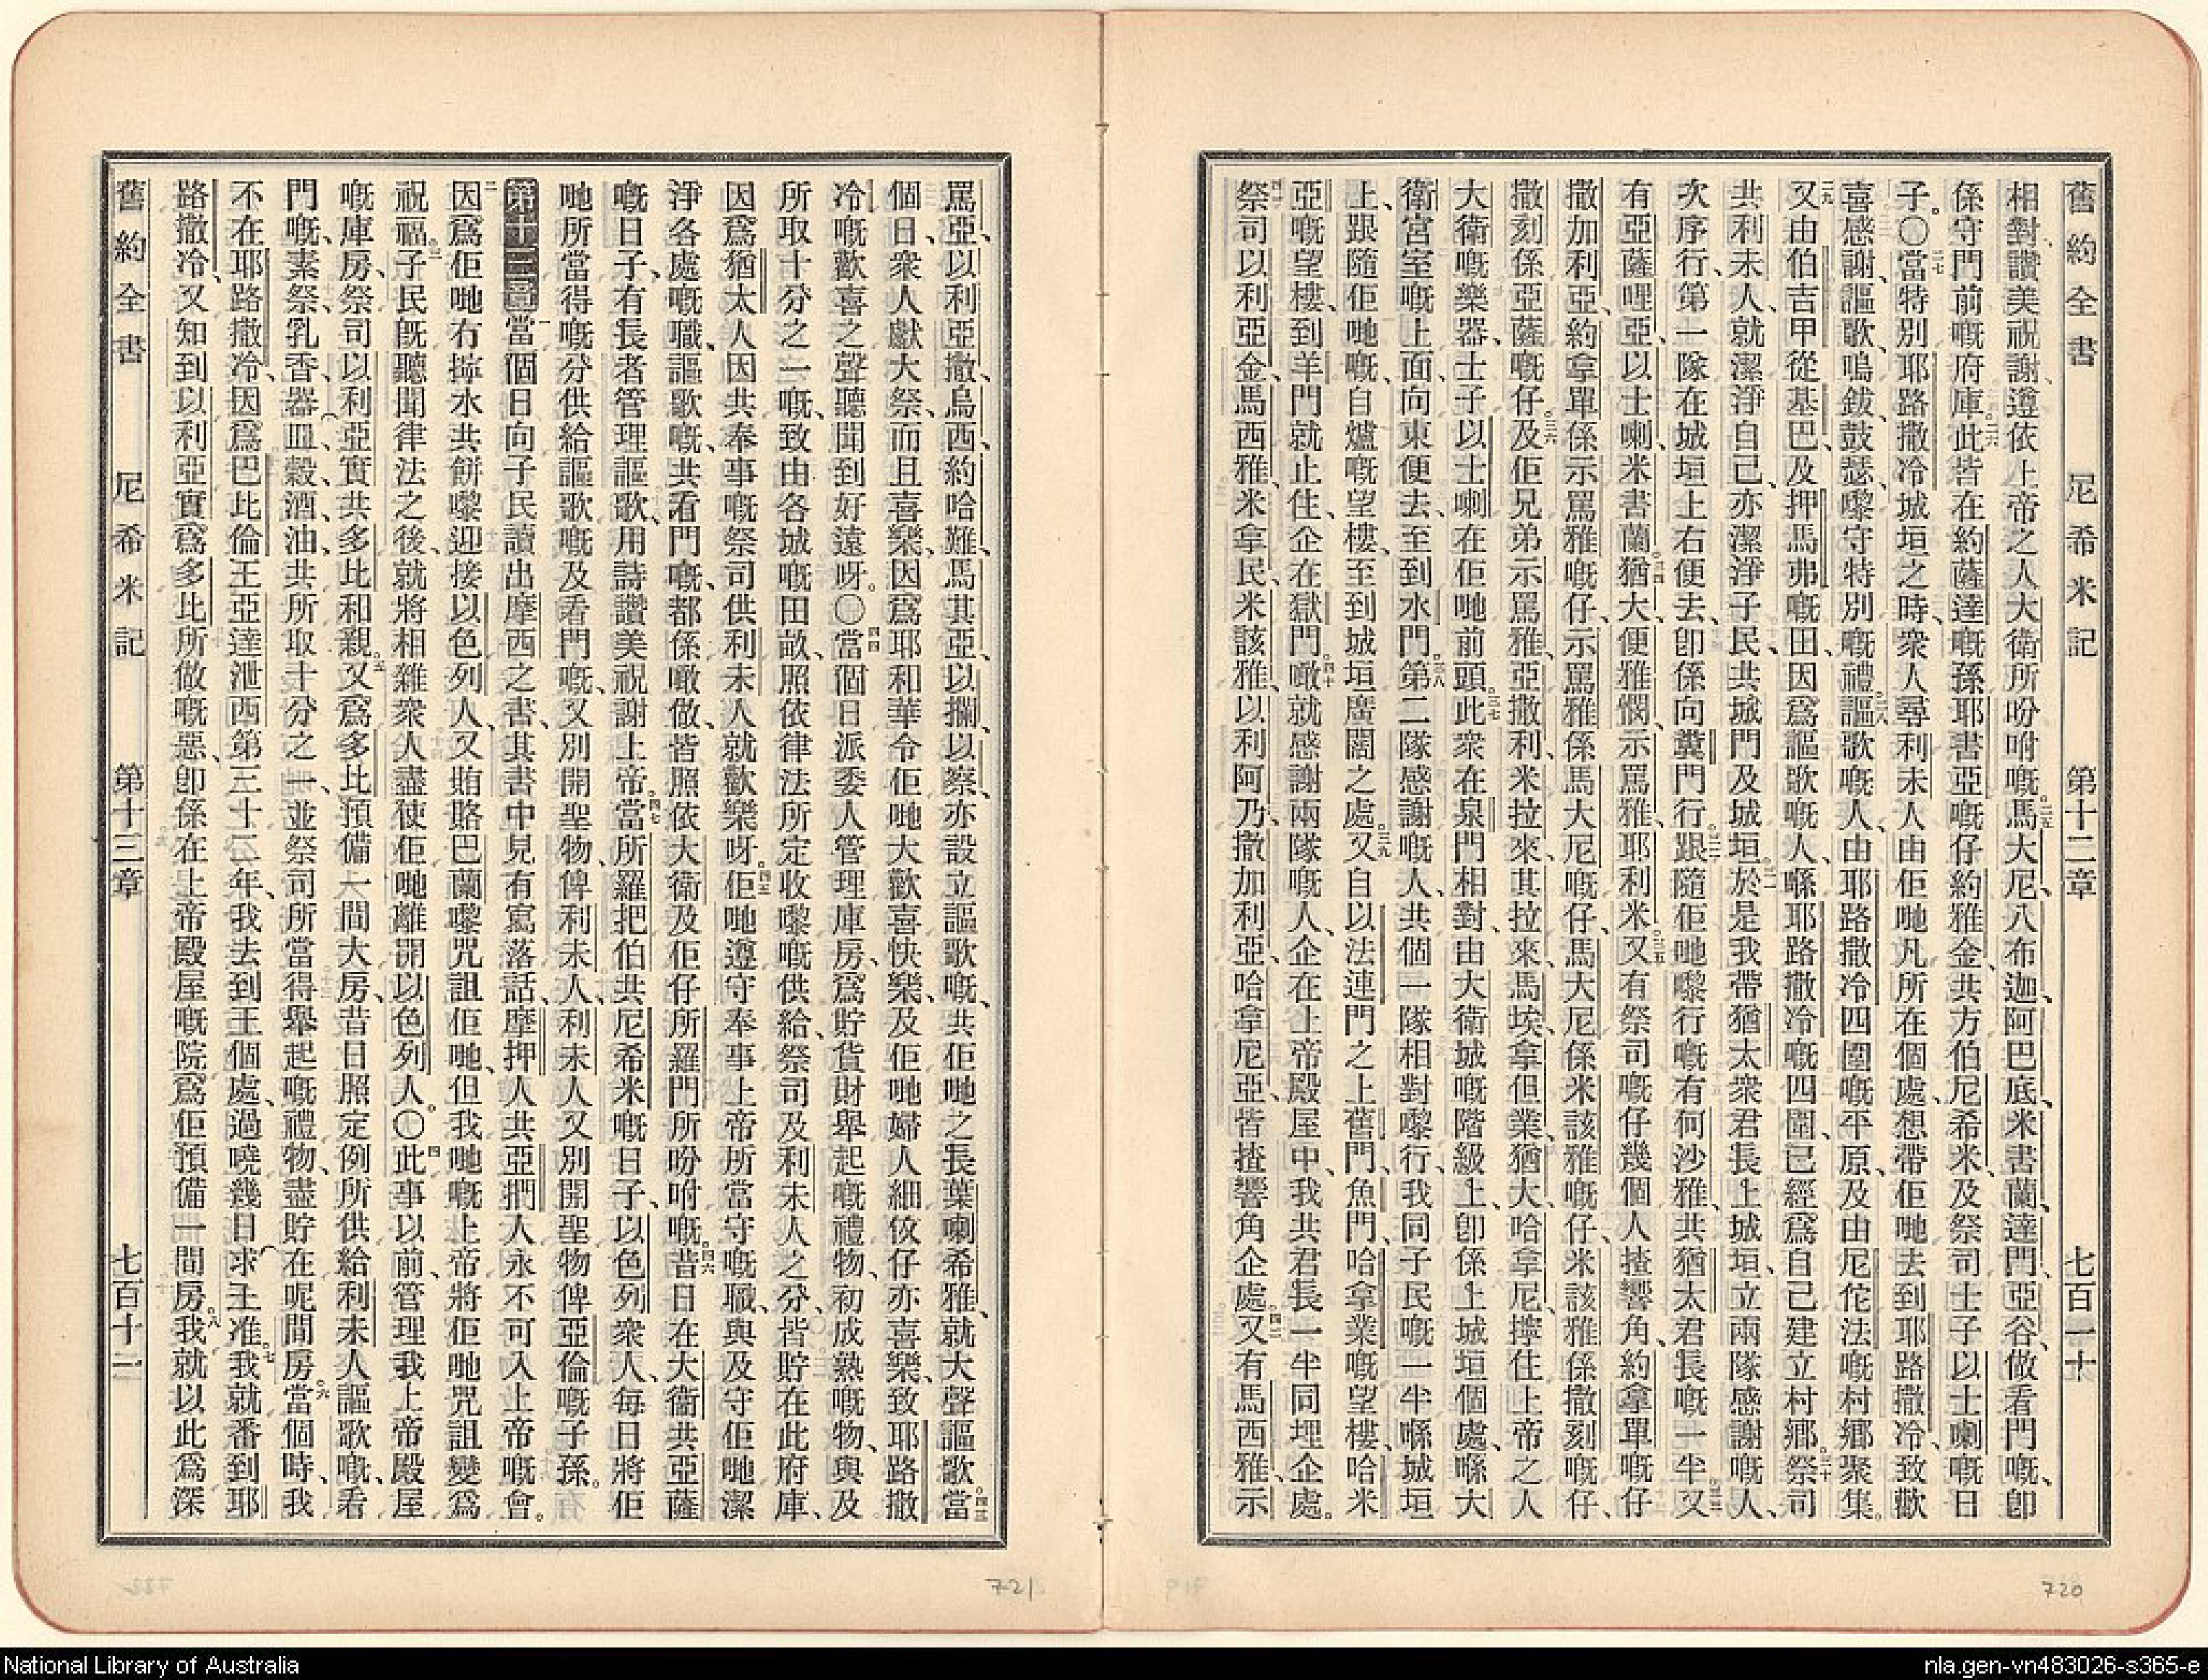 舊約全書 尼希米記 第十二章 七百二十
相對讚美祝謝、遵依上帝之人大衛所吩咐嘅。二五馬大尼、八布迦、阿巴底、米書蘭、達門、亞谷、做看門嘅、卽
係守門前嘅府庫。二六此皆在約薩達嘅孫耶書亞嘅仔約雅金、共方伯尼希米、及祭司士子以士喇嘅日
子。〇二七當特別耶路撒冷城垣之時、衆人尋利未人由佢哋凡所在個處、想帶佢哋去到耶路撒冷、致歡
喜感謝、謳歌、鳴鈸、鼓瑟、嚟守特別嘅禮。二八謳歌嘅人、由耶路撒冷四圍嘅平原、及由尼佗法嘅村鄉聚集。
二九又由伯吉甲、從基巴、及押馬弗嘅田、因爲謳歌嘅人、喺耶路撒冷嘅四圍、已經爲自己建立村鄉。三十祭司
共利未人、就潔淨自己、亦潔淨子民、共城門及城垣。三一於是我帶猶太衆君長上城垣、立兩隊感謝嘅人、
次序行、第一隊在城垣上右便去、卽係向糞門行。三二跟隨佢哋嚟行嘅有何沙雅、共猶太君長嘅一半、三三又
有亞薩哩亞、以士喇、米書蘭、三四猶大、便雅憫、示罵雅、耶利米、三五又有祭司嘅仔幾個人揸響角、約拿單嘅仔
撒加利亞、約拿單係示罵雅嘅仔、示罵雅係馬大尼嘅仔、馬大尼係米該雅嘅仔、米該雅係撒刻嘅仔、
撒刻係亞薩嘅仔。三六及佢兄弟示罵雅、亞撒利、米拉來、其拉來、馬埃、拿但業、猶大、哈拿尼、擰住上帝之人
大衛嘅樂器、士子以士喇在佢哋前頭。三七此衆在泉門相對、由大衛城嘅階級上、卽係上城垣個處、喺大
衛宮室嘅上面、向東便去、至到水門。三八第二隊感謝嘅人、共個一隊相對嚟行、我同子民嘅一半、喺城垣
上、跟隨佢哋嘅、自爐嘅望樓、至到城垣廣闊之處。三九又自以法連門之上、舊門、魚門、哈拿業嘅望樓、哈米
亞嘅望樓、到羊門、就止住、企在獄門。四十噉就感謝兩隊嘅人、企在上帝殿屋中、我共君長一半同埋企處。
四一祭司以利亞金、馬西雅、米拿民、米該雅、以利阿乃、撒加利亞、哈拿尼亞、皆揸響角企處。四二又有馬西雅、示
罵亞、以利亞撒、烏西、約哈難、馬其亞、以攔、以察、亦設立謳歌嘅、共佢哋之長葉喇希雅、就大聲謳歌。四三當
個日、衆人獻大祭、而且喜樂、因爲耶和華令佢哋大歡喜快樂、及佢哋婦人細伩仔亦喜樂、致耶路撒
冷嘅歡喜之聲、聽聞到好遠呀。〇四四當個日派委人管理庫房、爲貯貨財舉起嘅禮物、初成熟嘅物、與及
所取十分之一嘅、致由各城嘅田畝、照依律法所定收嚟嘅供給、祭司及利未人之分、皆貯在此府庫、
因爲猶太人因共奉事嘅祭司、供利未人就歡樂呀。四五佢哋遵守奉事上帝所當守嘅職、與及守佢哋潔
淨各處嘅職、謳歌嘅、共看門嘅、都係噉做、皆照依大衛及佢仔所羅門所吩咐嘅。四六昔日在大衛共亞薩
嘅日子、有長者管理謳歌、用詩讚美祝謝上帝。四七當所羅把伯共尼希米嘅日子、以色列衆人、每日將佢
哋所當得嘅分、供給謳歌嘅及看門嘅、又別開聖物、俾利未人、利未人又別開聖物俾亞倫嘅子孫。
第十三章 一當個日向子民讀出摩西之書、其書中見有寫落話、摩押人共亞捫人永不可入上帝嘅會。
二因爲佢哋冇擰水共餅嚟迎接以色列人、又賄賂巴蘭嚟咒詛佢哋、但我哋嘅上帝將佢哋咒詛變爲
祝福。三子民旣聽聞律法之後、就將相雜衆人、盡使佢哋離開以色列人。〇四此事以前、管理我上帝殿屋
嘅庫房、祭司以利亞實、共多比和親。五又爲多比預備一間大房、昔日照定例所供給利未人謳歌嘅、看
門嘅、素祭、乳香、器皿、穀酒油、共所取十分之一、並祭司所當得舉起嘅禮物、盡貯在呢間房。六當個時、我
不在耶路撒冷、因爲巴比倫王亞達泄西第三十二年、我去到王個處、過曉幾日求王准我、七就番到耶
路撒冷、又知到以利亞實爲多比所做嘅惡、卽係在上帝殿屋嘅院、爲佢預備一間房。八我就以此爲深
舊約全書 尼希米記 第十三章 七百二十一
720
721
National Library of Australia
nla.gen-vn483026-s365-e